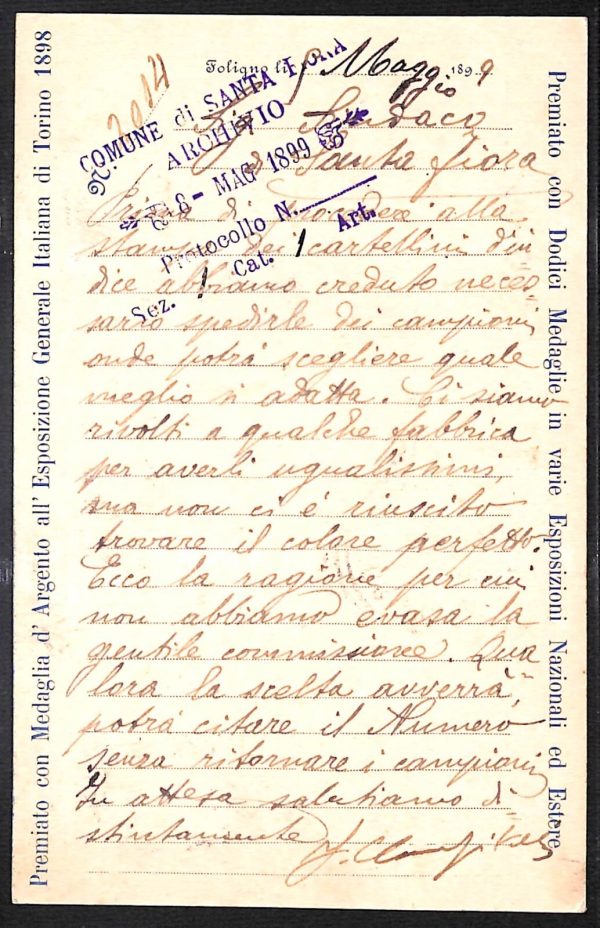 Premiato con Medaglia d' Argento all' Esposizione Generale Italiana di Torino 1898
Premiato con Dodici Medaglie in varie Esposizioni Nazionali ed Estere
2014
Foligno li Maggio 1899
COMUNE di SANTA FIORA
ARCHIVIO
8 - MAG 1899
Protocollo N.
Sez. 1 Cat. 1 Art.
Sindaco
Santa Fiora
Prima di procedere alla
stampa dei cartellini d'in
dice abbiamo creduto neces-
sario spedirle dei campioni
onde potrà scegliere quale
meglio si adatta. Ci siamo
rivolti a qualche fabbrica
per averli ugualissimi,
ma non ci è riuscito
trovare il colore perfetto.
Ecco la ragione per cui
non abbiamo evasa la
gentile commissione. Qua
lora la scelta avverrà,
potrà citare il Numero
senza ritornare i campioni
In attesa salutiamo di
stintamente